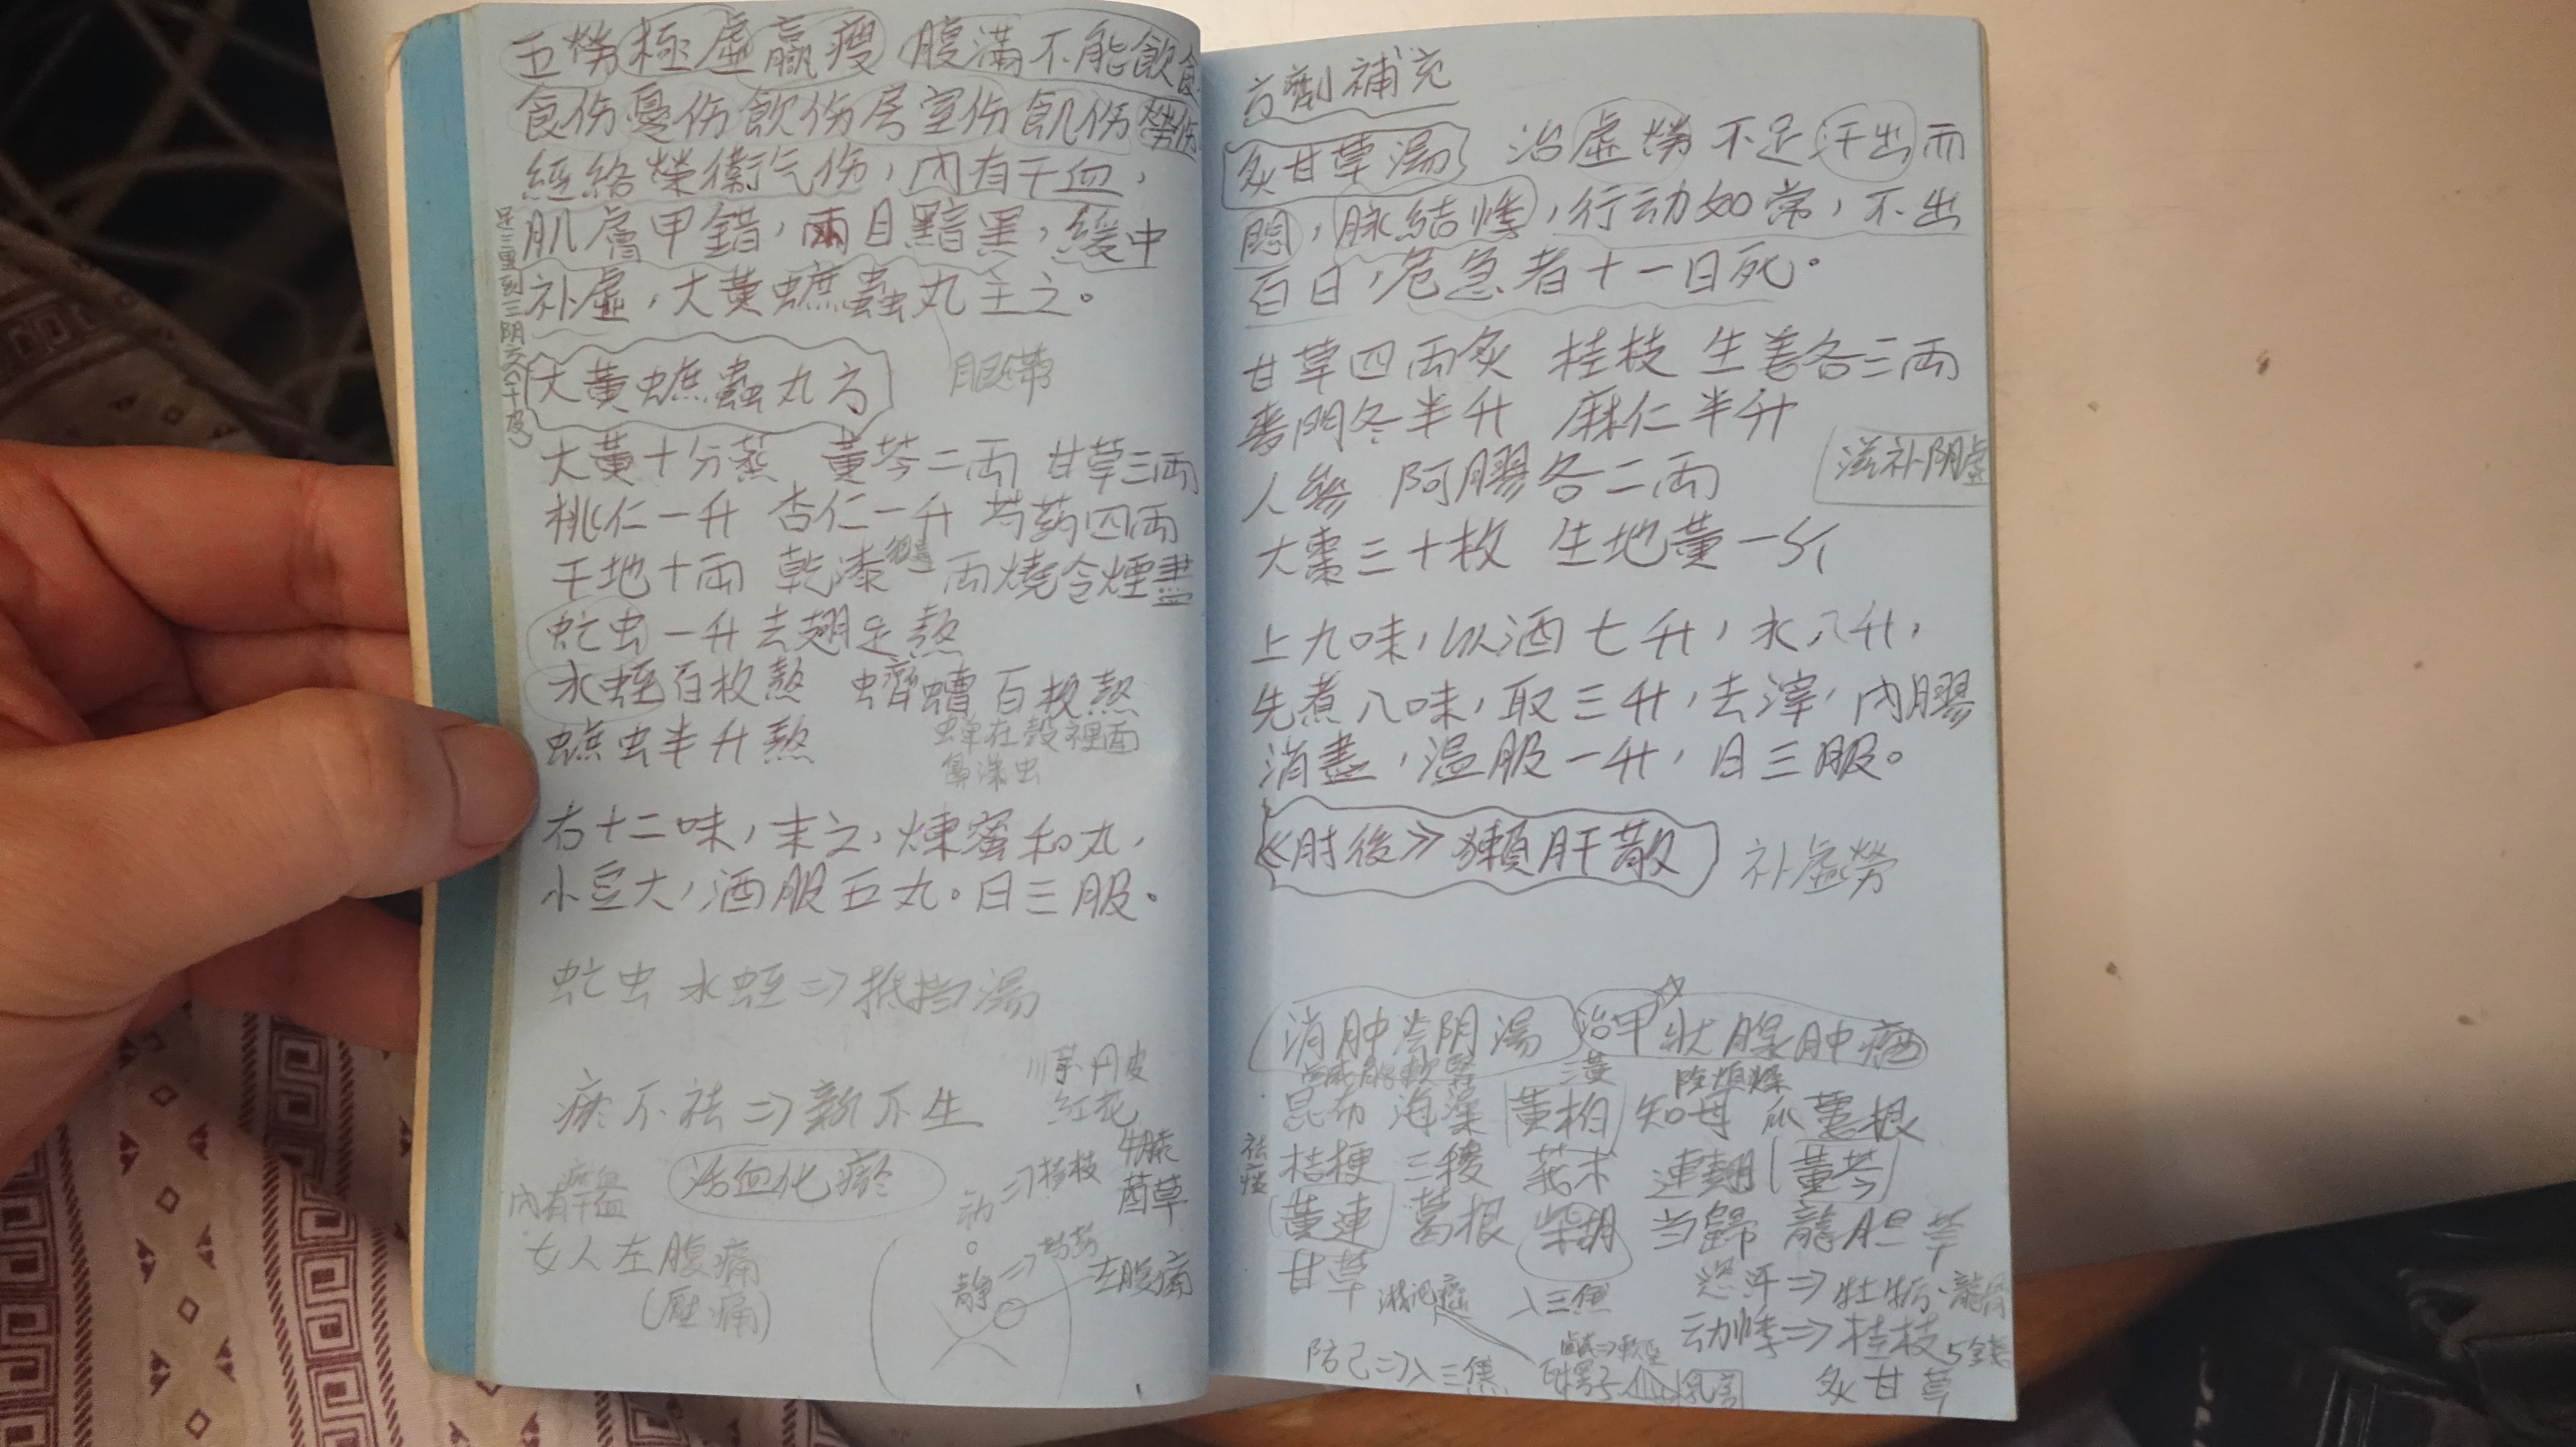 五勞極虛羸瘦 腹滿不能飲食
食伤憂伤飲伤房室伤飢伤勞伤
經絡榮衛气伤，内有干血，
肌膚甲錯，兩目黯黑，緩中
补虛，大黃蟅蟲丸主之。
足三里到三阴交(干皮)
眼帶
大黃蟅蟲丸方
大黃十分蒸 黃芩二両 甘草三両
桃仁一升 杏仁一升 芍药四両
干地十両 乾漆一両燒令煙盡
虻虫一升去翅足熬
水蛭百枚熬 蠐螬百枚熬
蟅虫半升熬
蟬在殼裡面
右十二味，末之，煉蜜和丸，
小豆大，酒服五丸。日三服。
虻虫 水蛭⇒抵挡湯
瘀不祛⇒新不生
川芎、丹皮
紅花
活血化瘀
内有干血
动⇒桂枝
牛膝
茜草
女人左腹痛
(壓痛)
静⇒芍药
左腹痛
方劑補充
炙甘草湯 治虛勞不足汗出而
悶，脉結悸，行动如常，不出
百日，危急者十一日死。
甘草四両炙 桂枝 生姜各三両
麥門冬半升 麻仁半升
人參 阿膠各二両
滋补阴虛
大棗三十枚 生地黃一斤
上九味，以酒七升，水八升，
先煮八味，取三升，去滓，内膠
消盡，温服一升，日三服。
《肘後》獺肝散 补虛勞
消肿营阴湯 治甲状腺肿瘤
鹹能軟堅 三黃 除煩燥
昆布 海藻 黃柏 知母 瓜蔞根
祛痰
桔梗 三稜 莪术 連翹 黃芩
黃連 葛根 柴胡 当歸 龍胆草
甘草
入三焦
盗汗⇒牡蛎、龍骨
动悸⇒桂枝5錢
炙甘草
防己⇒入三焦
鹹⇒軟堅